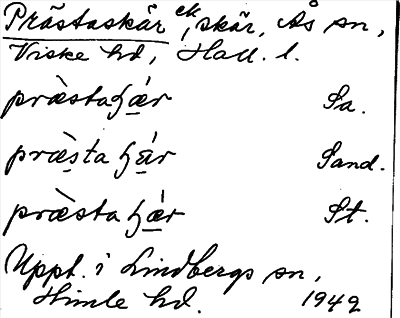 Prästaskär ek, skär, Ås sn,
Viske hd, Hall. l.
præ̀staʃǽr Sa.
præ̀sta ʃǽr Sand.
præ̀sta ʃǽr St.
Uppt. i Lindbergs sn,
Himle hd. 1942